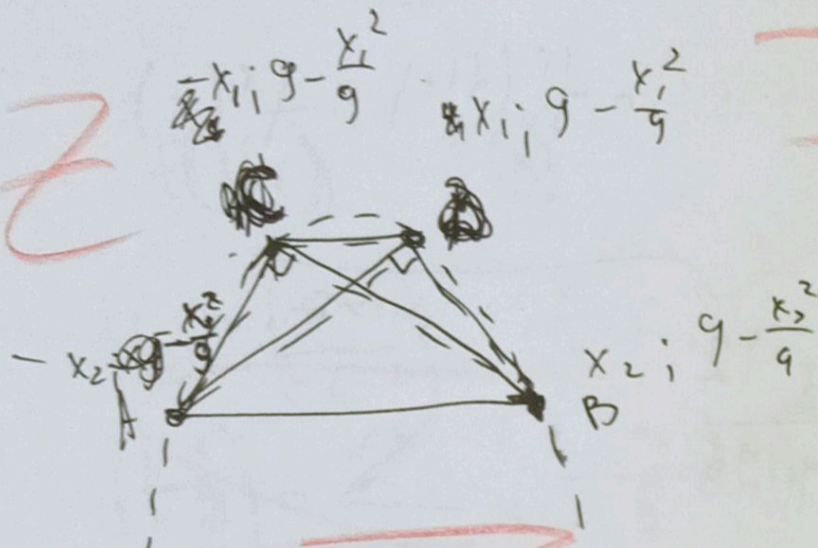 -x₁; 9 - x₁²/9
x₁; 9 - x₁²/9
- x₂
- x₂²/9
x₂; 9 - x₂²/9
A
B